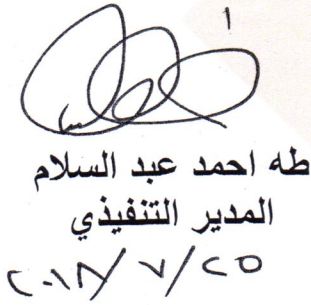 طه احمد عبد السلام
المدير التنفيذي
٢٠١٨/٧/٢٥